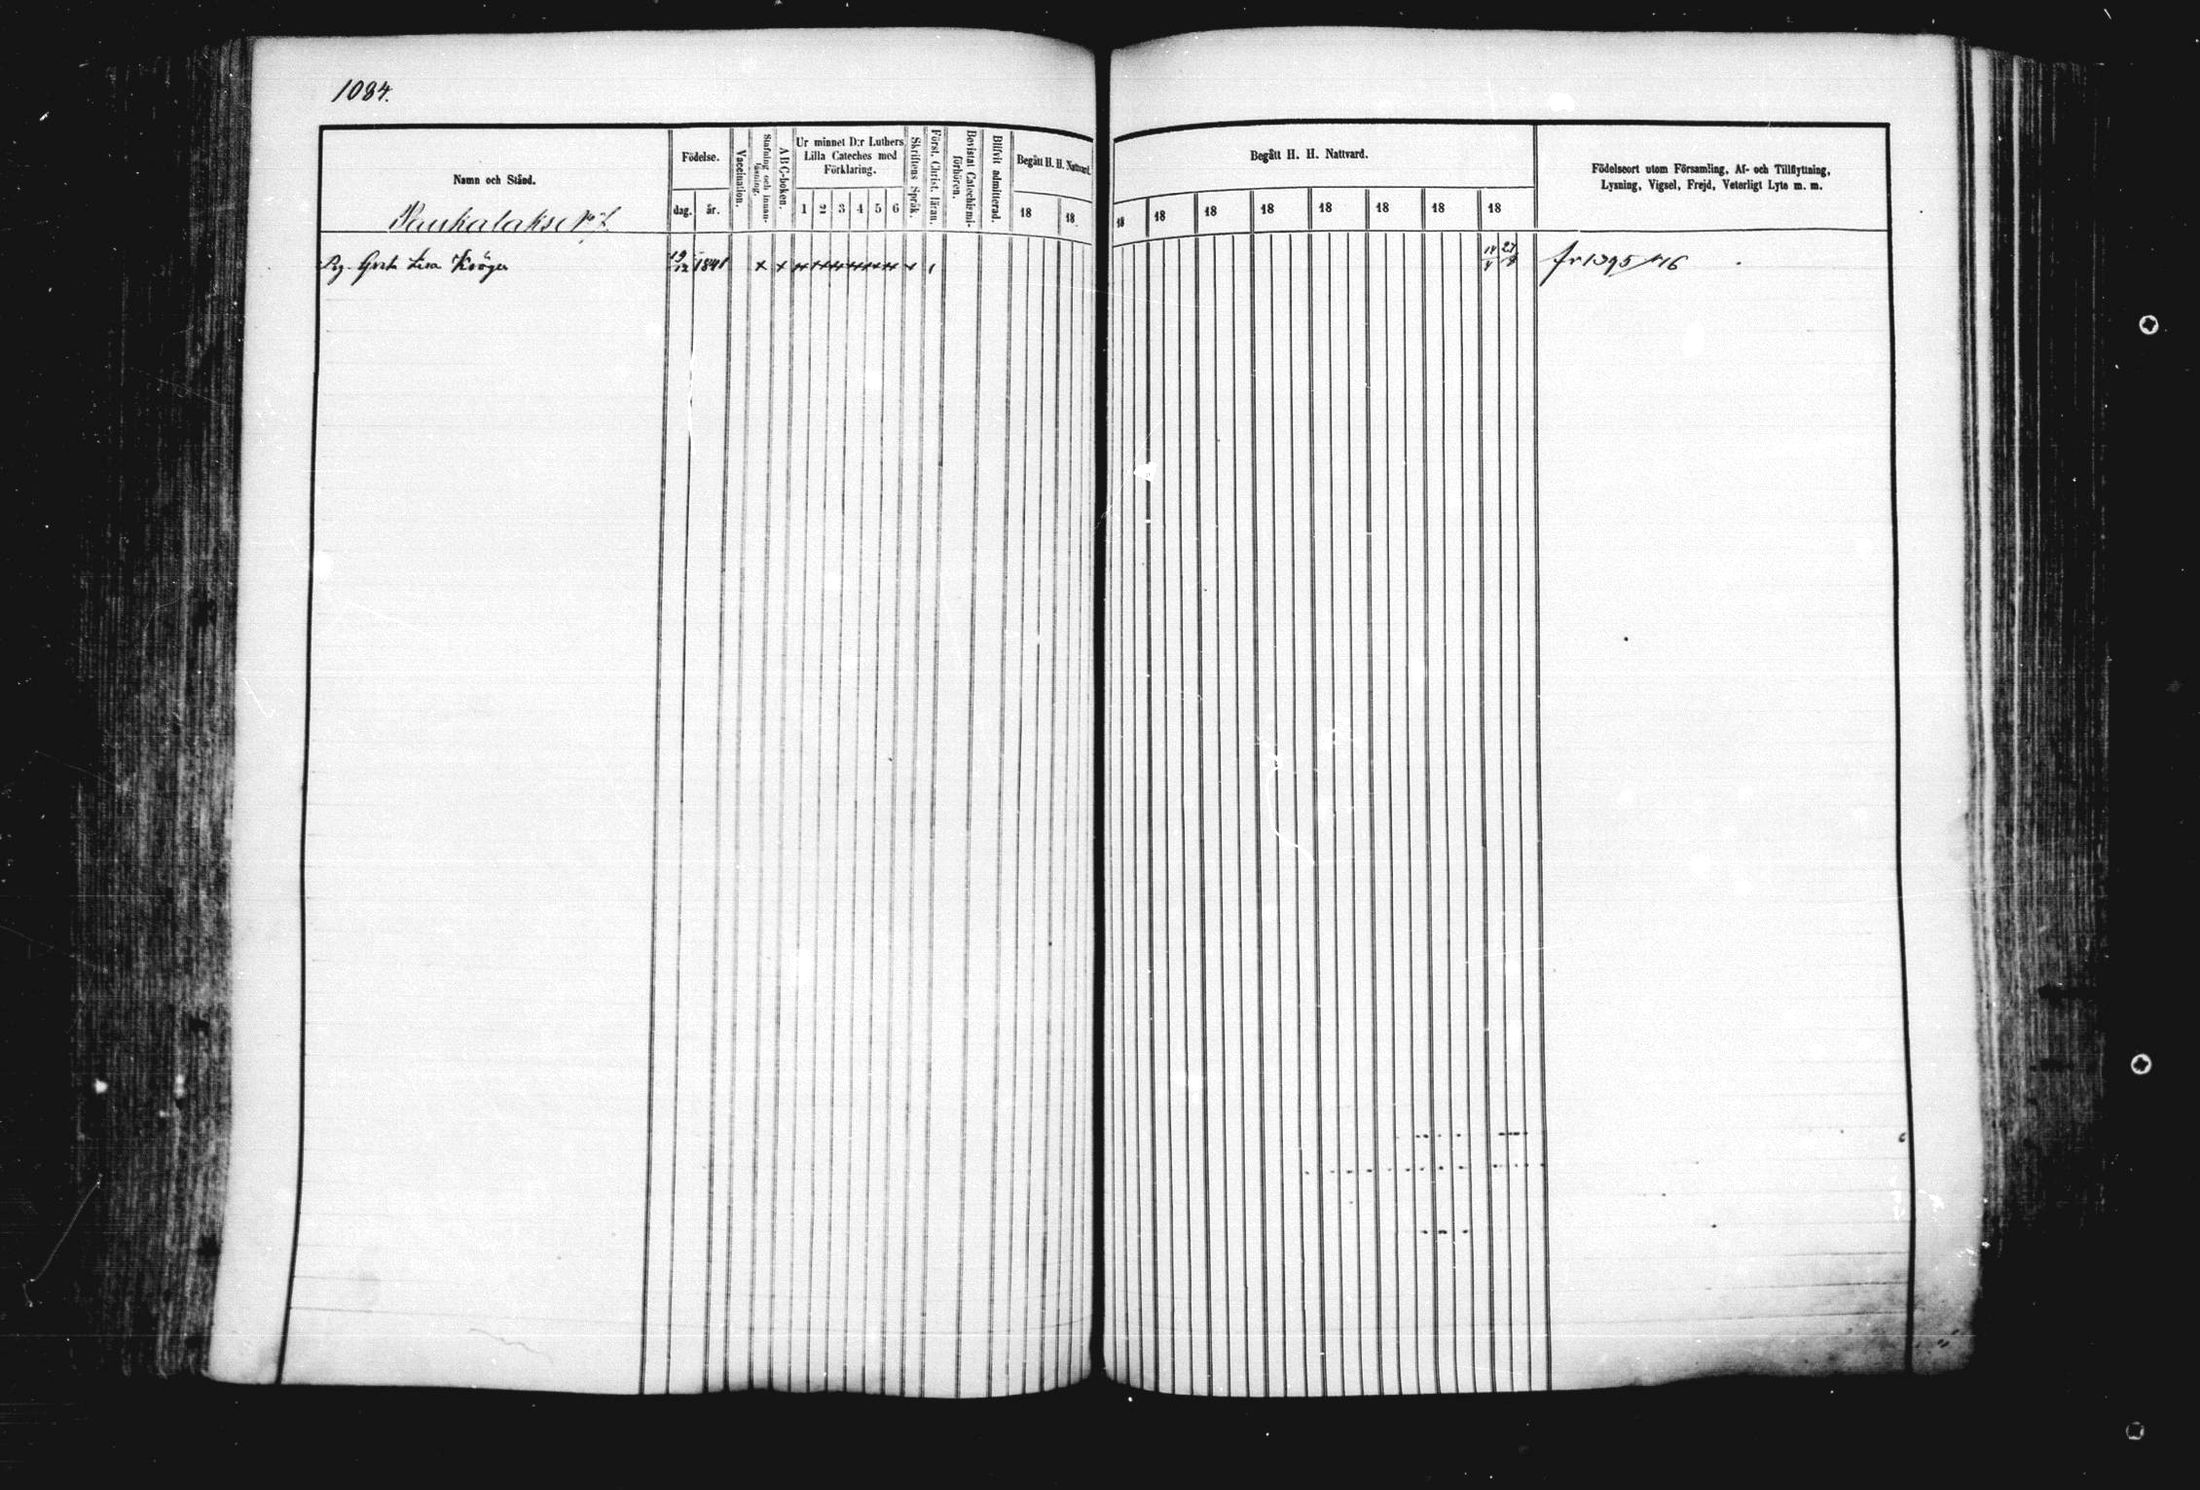 1084.
Namn och Stånd.
Födelse.
dag.
år.
Vaccination.
Stafning och innan-
läsning.
A B C-boken.
Ur minnet D:r Luthers
Lilla Cateches med
Förklaring.
1 2 3 4 5 6
Skriftens Språk.
Först. Christ. läran.
Bevistat Catechismi-
förhören.
Blifvit admitterad.
Begått H. H. Nattvard.
18 18
Begått H. H. Nattvard.
18 18 18 18 18 18 18 18
Födelseort utom Församling, Af- och Tillflyttning,
Lysning, Vigsel, Frejd, Veterligt Lyte m. m.
Pg. Greta Lisa Kröger 19/12 1841 x x
fr 1395